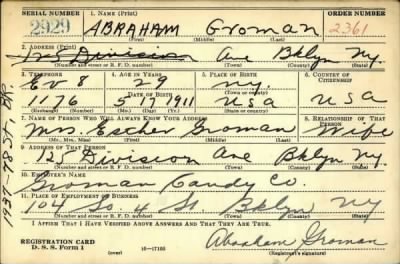 SERIAL NUMBER 1. NAME (Print) ORDER NUMBER
2929 ABRAHAM Groman 2361
(First) (Middle) (Last)
2. ADDRESS (Print)
Division Ave Bklyn Ny.
(Number and street or R. F. D. number) (Town) (County) (State)
3. TELEPHONE 4. AGE IN YEARS 5. PLACE OF BIRTH 6. COUNTRY OF CITIZENSHIP
Ev 8 29 Ny.
DATE OF BIRTH
1776 5 17 1911 USA USA
(Exchange) (Number) (Mo.) (Day) (Yr.) (State or country)
7. NAME OF PERSON WHO WILL ALWAYS KNOW YOUR ADDRESS 8. RELATIONSHIP OF THAT PERSON
Mrs. Esther Groman Wife
(Mr., Mrs., Miss) (First) (Middle) (Last)
9. ADDRESS OF THAT PERSON
125 Division Ave Bklyn Ny.
(Number and street or R. F. D. number) (Town) (County) (State)
10. EMPLOYER'S NAME
Groman Candy Co.
11. PLACE OF EMPLOYMENT OR BUSINESS
104 So. 4 St Bklyn Ny
(Number and street or R. F. D. number) (Town) (County) (State)
I AFFIRM THAT I HAVE VERIFIED ABOVE ANSWERS AND THAT THEY ARE TRUE.
REGISTRATION CARD
D. S. S. Form 1 (over) 16—17105 Abraham Groman
(Registrant's signature)
1937-78 St. Bk.